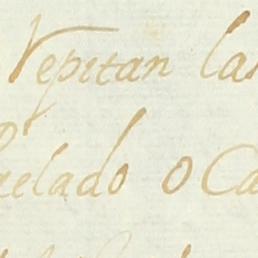 repitan las
elado o Ca